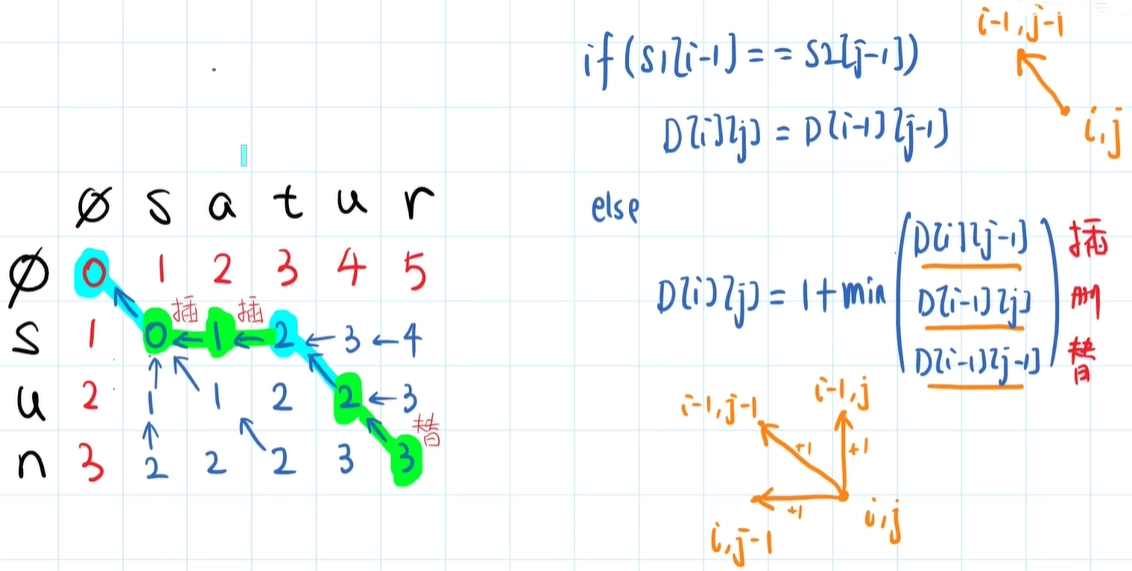 i-1, j-1
if (S1[i-1] == S2[j-1])
i, j
D[i][j] = D[i-1][j-1]
else
Ø s a t u r
D[i][j-1] 插
Ø 0 1 2 3 4 5
D[i][j] = 1 + min
D[i-1][j] 刪
插 插
s 1 0 ← 1 ← 2 ← 3 ← 4
D[i-1][j-1] 替
u 2 1 1 2 2 ← 3
i-1, j-1
i-1, j
替
n 3 2 2 2 3 3
+1
+1
+1
i, j
i, j-1